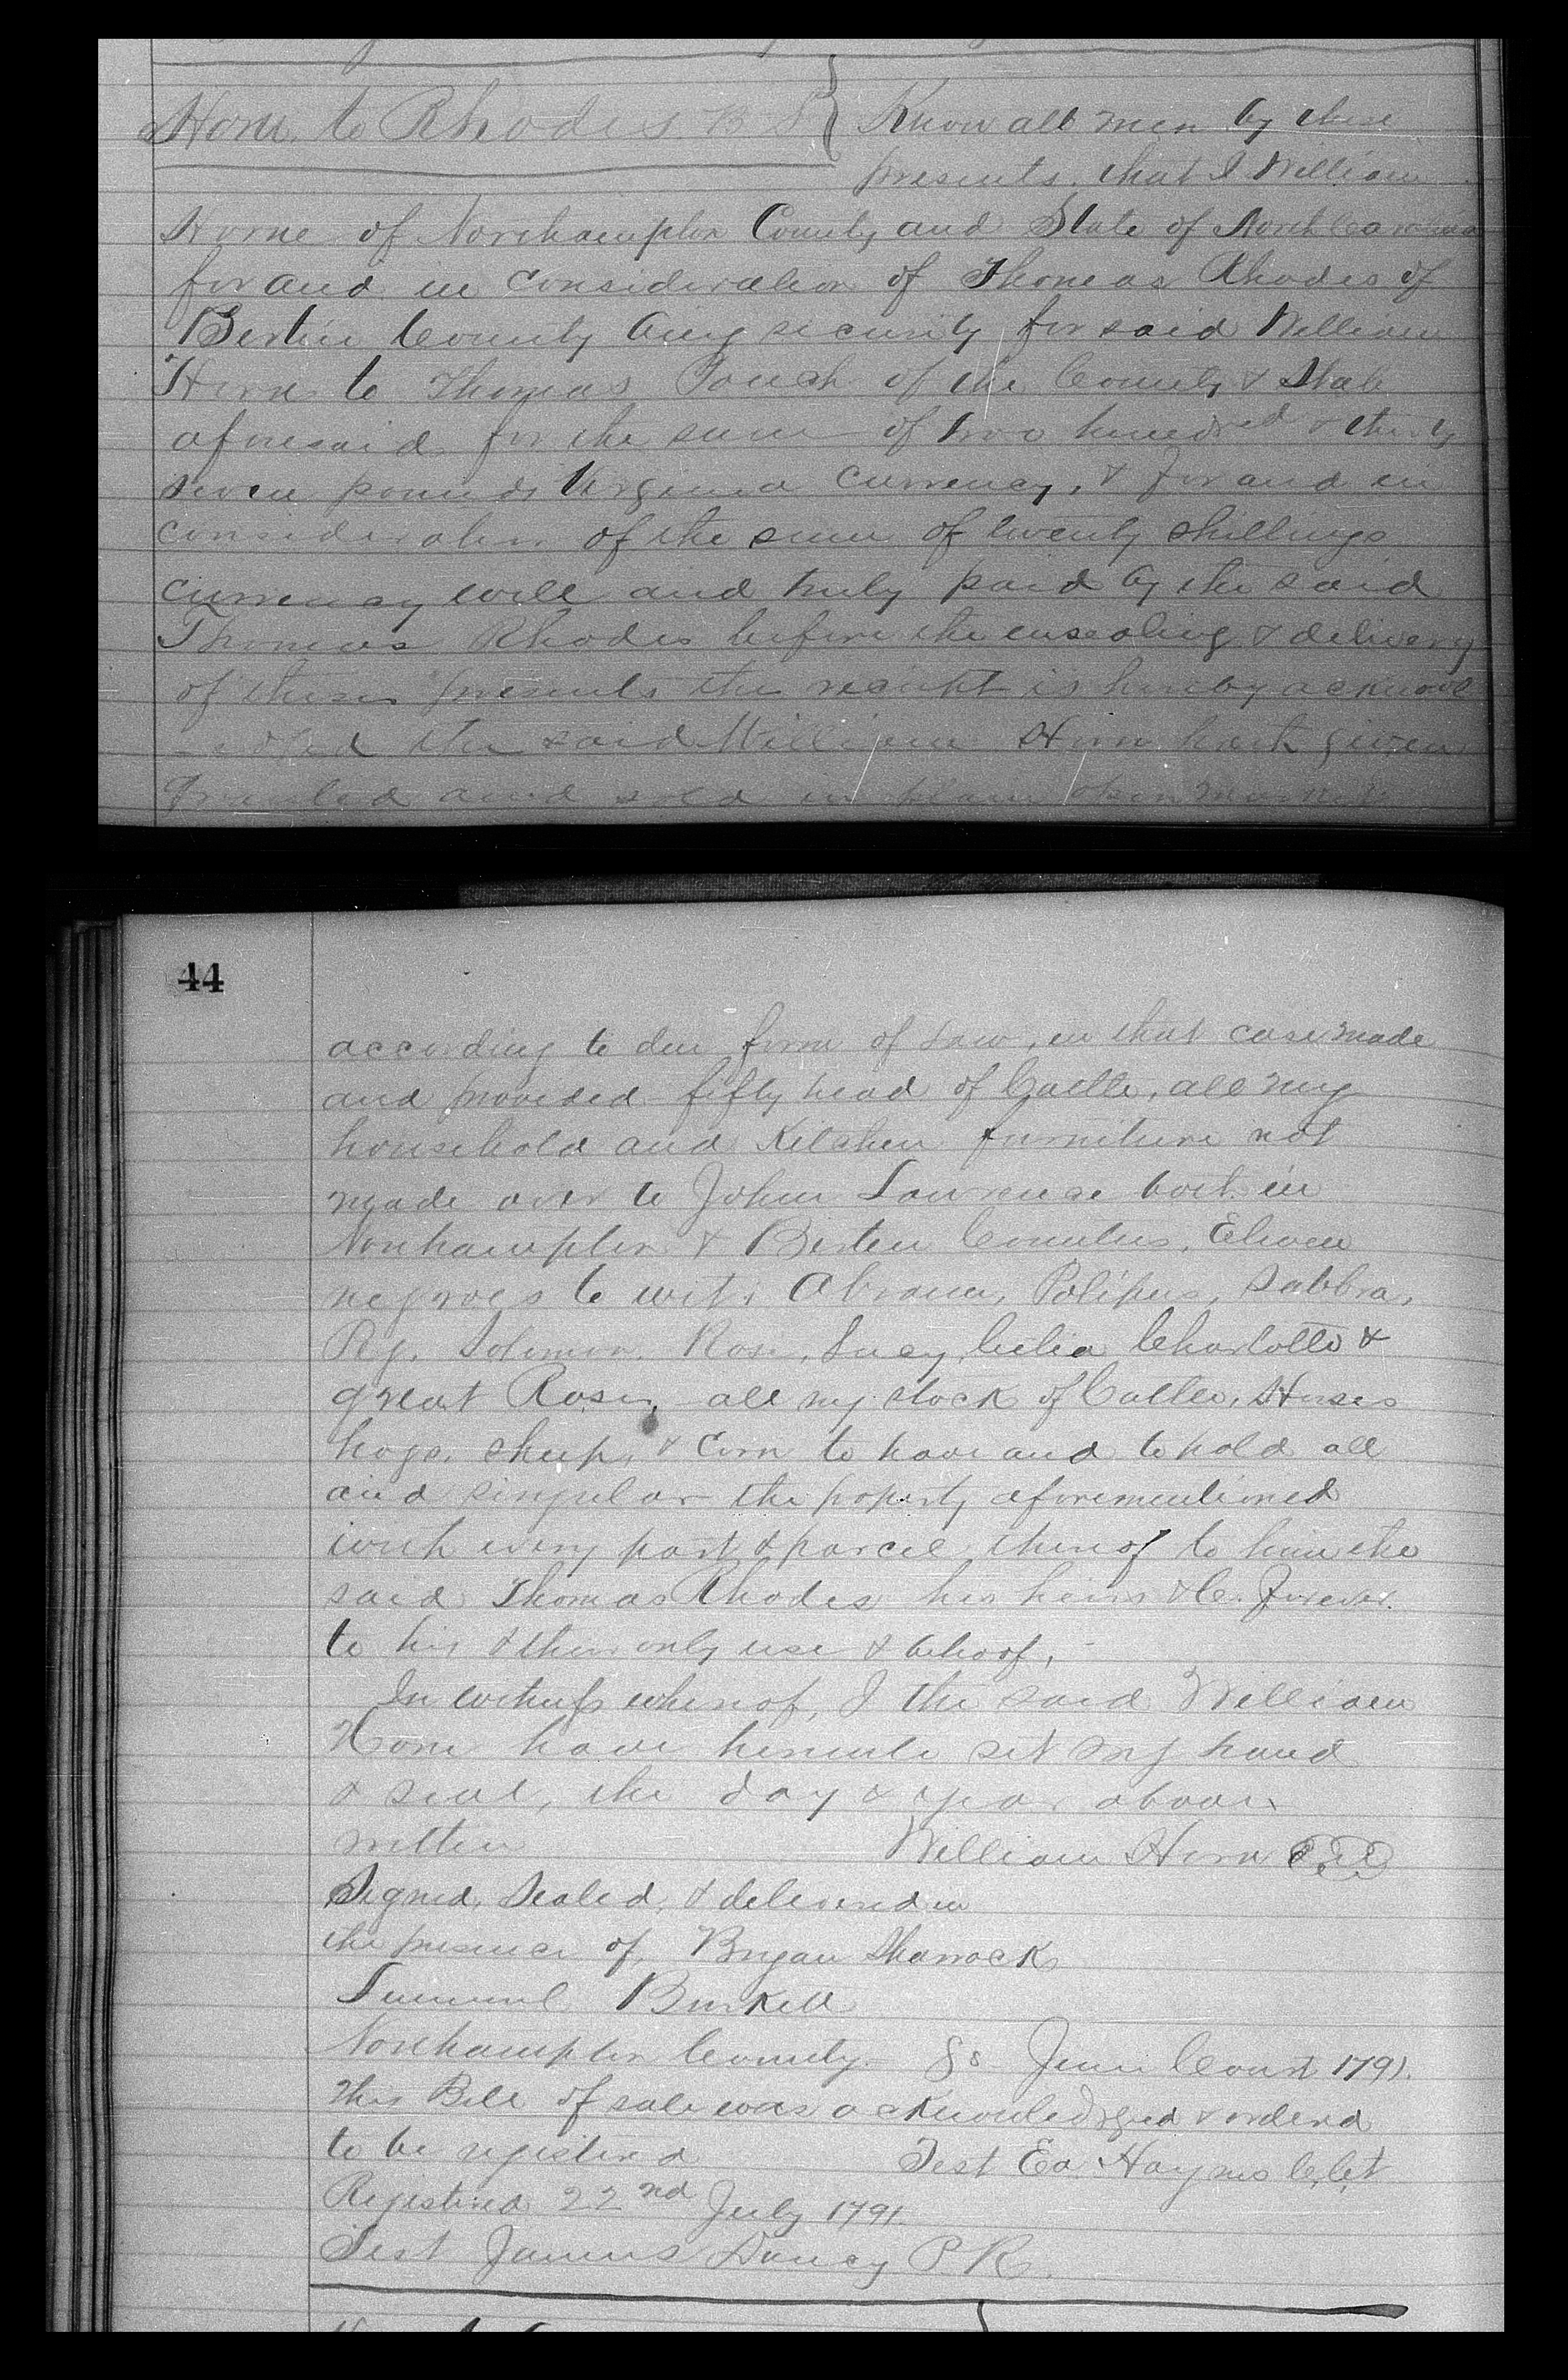 Horne to Rhodes B S } Know all men by these
presents, that I William
Horne of Northampton County and State of North Carolina
for and in consideration of Thomas Rhodes of
Bertie County being security for said William
Horn to Thomas of the County & State
aforesaid for the sum of two hundred & thirty
seven pounds Virginia currency, & for and in
consideration of the sum of twenty shillings
currency well and truly paid by the said
Thomas Rhodes before the ensealing & delivery
of these presents the receipt is hereby acknowl
-edged the said William Horn hath given
granted and sold in plain open market
44
according to due form of Law, in that case made
and provided fifty head of Cattle, all my
household and Kitchen furniture not
made over to John Lawrence both in
Northampton & Bertie Counties, Eleven
negroes to wit, Abram, Polipus, Sabbra,
Solomon Rose, Lucy, Celia Charlotte &
great Rose, all my stock of Cattle, Horses
hogs, sheep, & Corn to have and to hold all
and singular the property aforementioned
with every part & parcel thereof to him the
said Thomas Rhodes his heirs &C. forever.
to his & their only use & behoof,
In witness whereof, I the said William
Horn have hereunto set my hand
& seal, the day & year above
written William Horn Seal
Signed, Sealed, & delivered in
the presence of, Bryan Sharrock
Lemuel Burkett
Northampton County. Ss June Court 1791.
This Bill of sale was acknowledged & orderd
to be registerd Test Ea. Haynes C,Ct,
Registered 22nd July 1791.
Test James Dancy P.R.